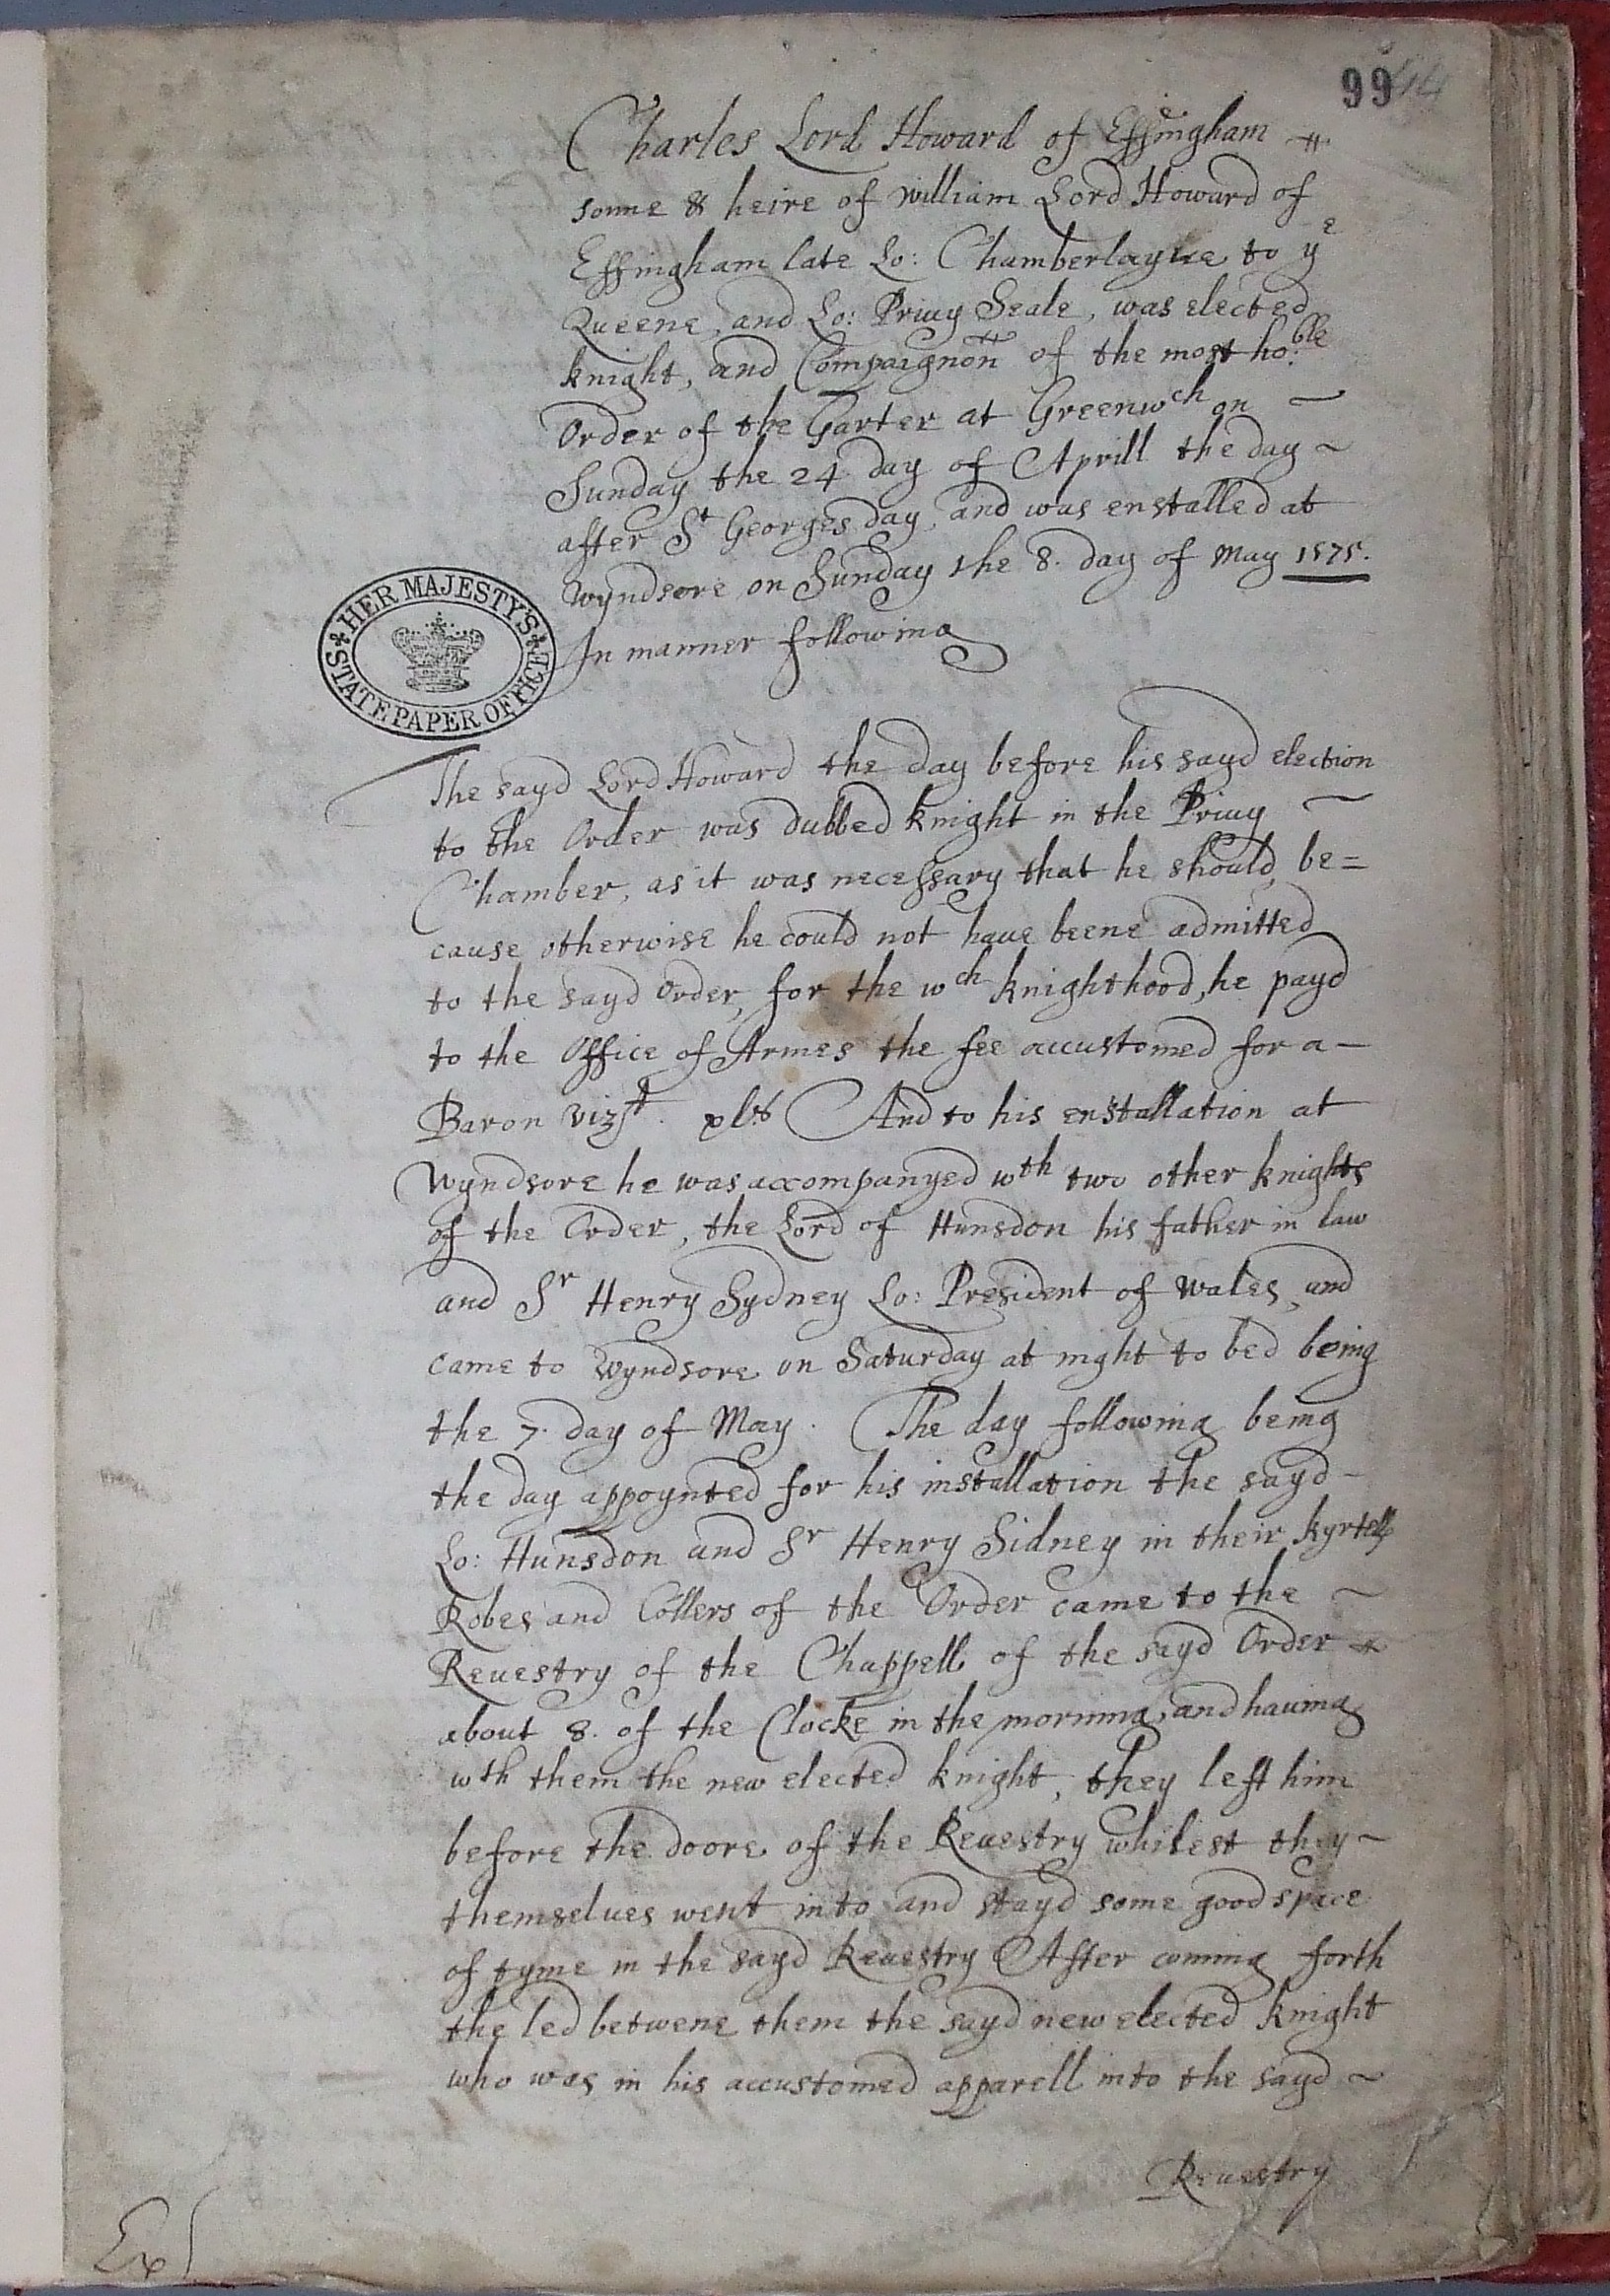 99
Charles Lord Howard of Effingham
sonne & heire of William Lord Howard of
Effingham late Lo: Chamberlayne to yᵉ
Queene, and Lo: Priuy Seale, was elected
knight, and Compaignon of the most hoᵇˡᵉ
Order of the Garter at Greenwᶜʰ on
Sunday the 24 day of Aprill the day
after Sᵗ Georges day, and was enstalled at
Wyndsore on Sunday the 8. day of May 1575.
In manner following
HER MAJESTY'S
STATE PAPER OFFICE
The sayd Lord Howard the day before his sayd election
to the Order was dubbed knight in the Priuy
Chamber, as it was necessary that he should, be=
cause otherwise he could not haue beene admitted
to the sayd Order, for the wᶜʰ knighthood, he payd
to the Office of Armes the fee accustomed for a
Baron vizᵗ. And to his enstallation at
Wyndsore he was accompanyed wᵗʰ two other knights
of the Order, the Lord of Hunsdon his father in law
and Sʳ Henry Sydney Lo: President of Wales, and
came to Wyndsore on Saturday at night to bed being
the 7. day of May. The day following being
the day appoynted for his installation the sayd
Lo: Hunsdon and Sʳ Henry Sidney in their kyrtells
Robes and Collers of the Order came to the
Reuestry of the Chappell of the sayd Order
about 8. of the Clocke in the morning, and hauing
wᵗʰ them the new elected knight, they left him
before the doore of the Reuestry whilest they
themselues went into and stayd some good space
of tyme in the sayd Reuestry After coming forth
the led betwene them the sayd new elected knight
who was in his accustomed apparell into the sayd
Reuestry